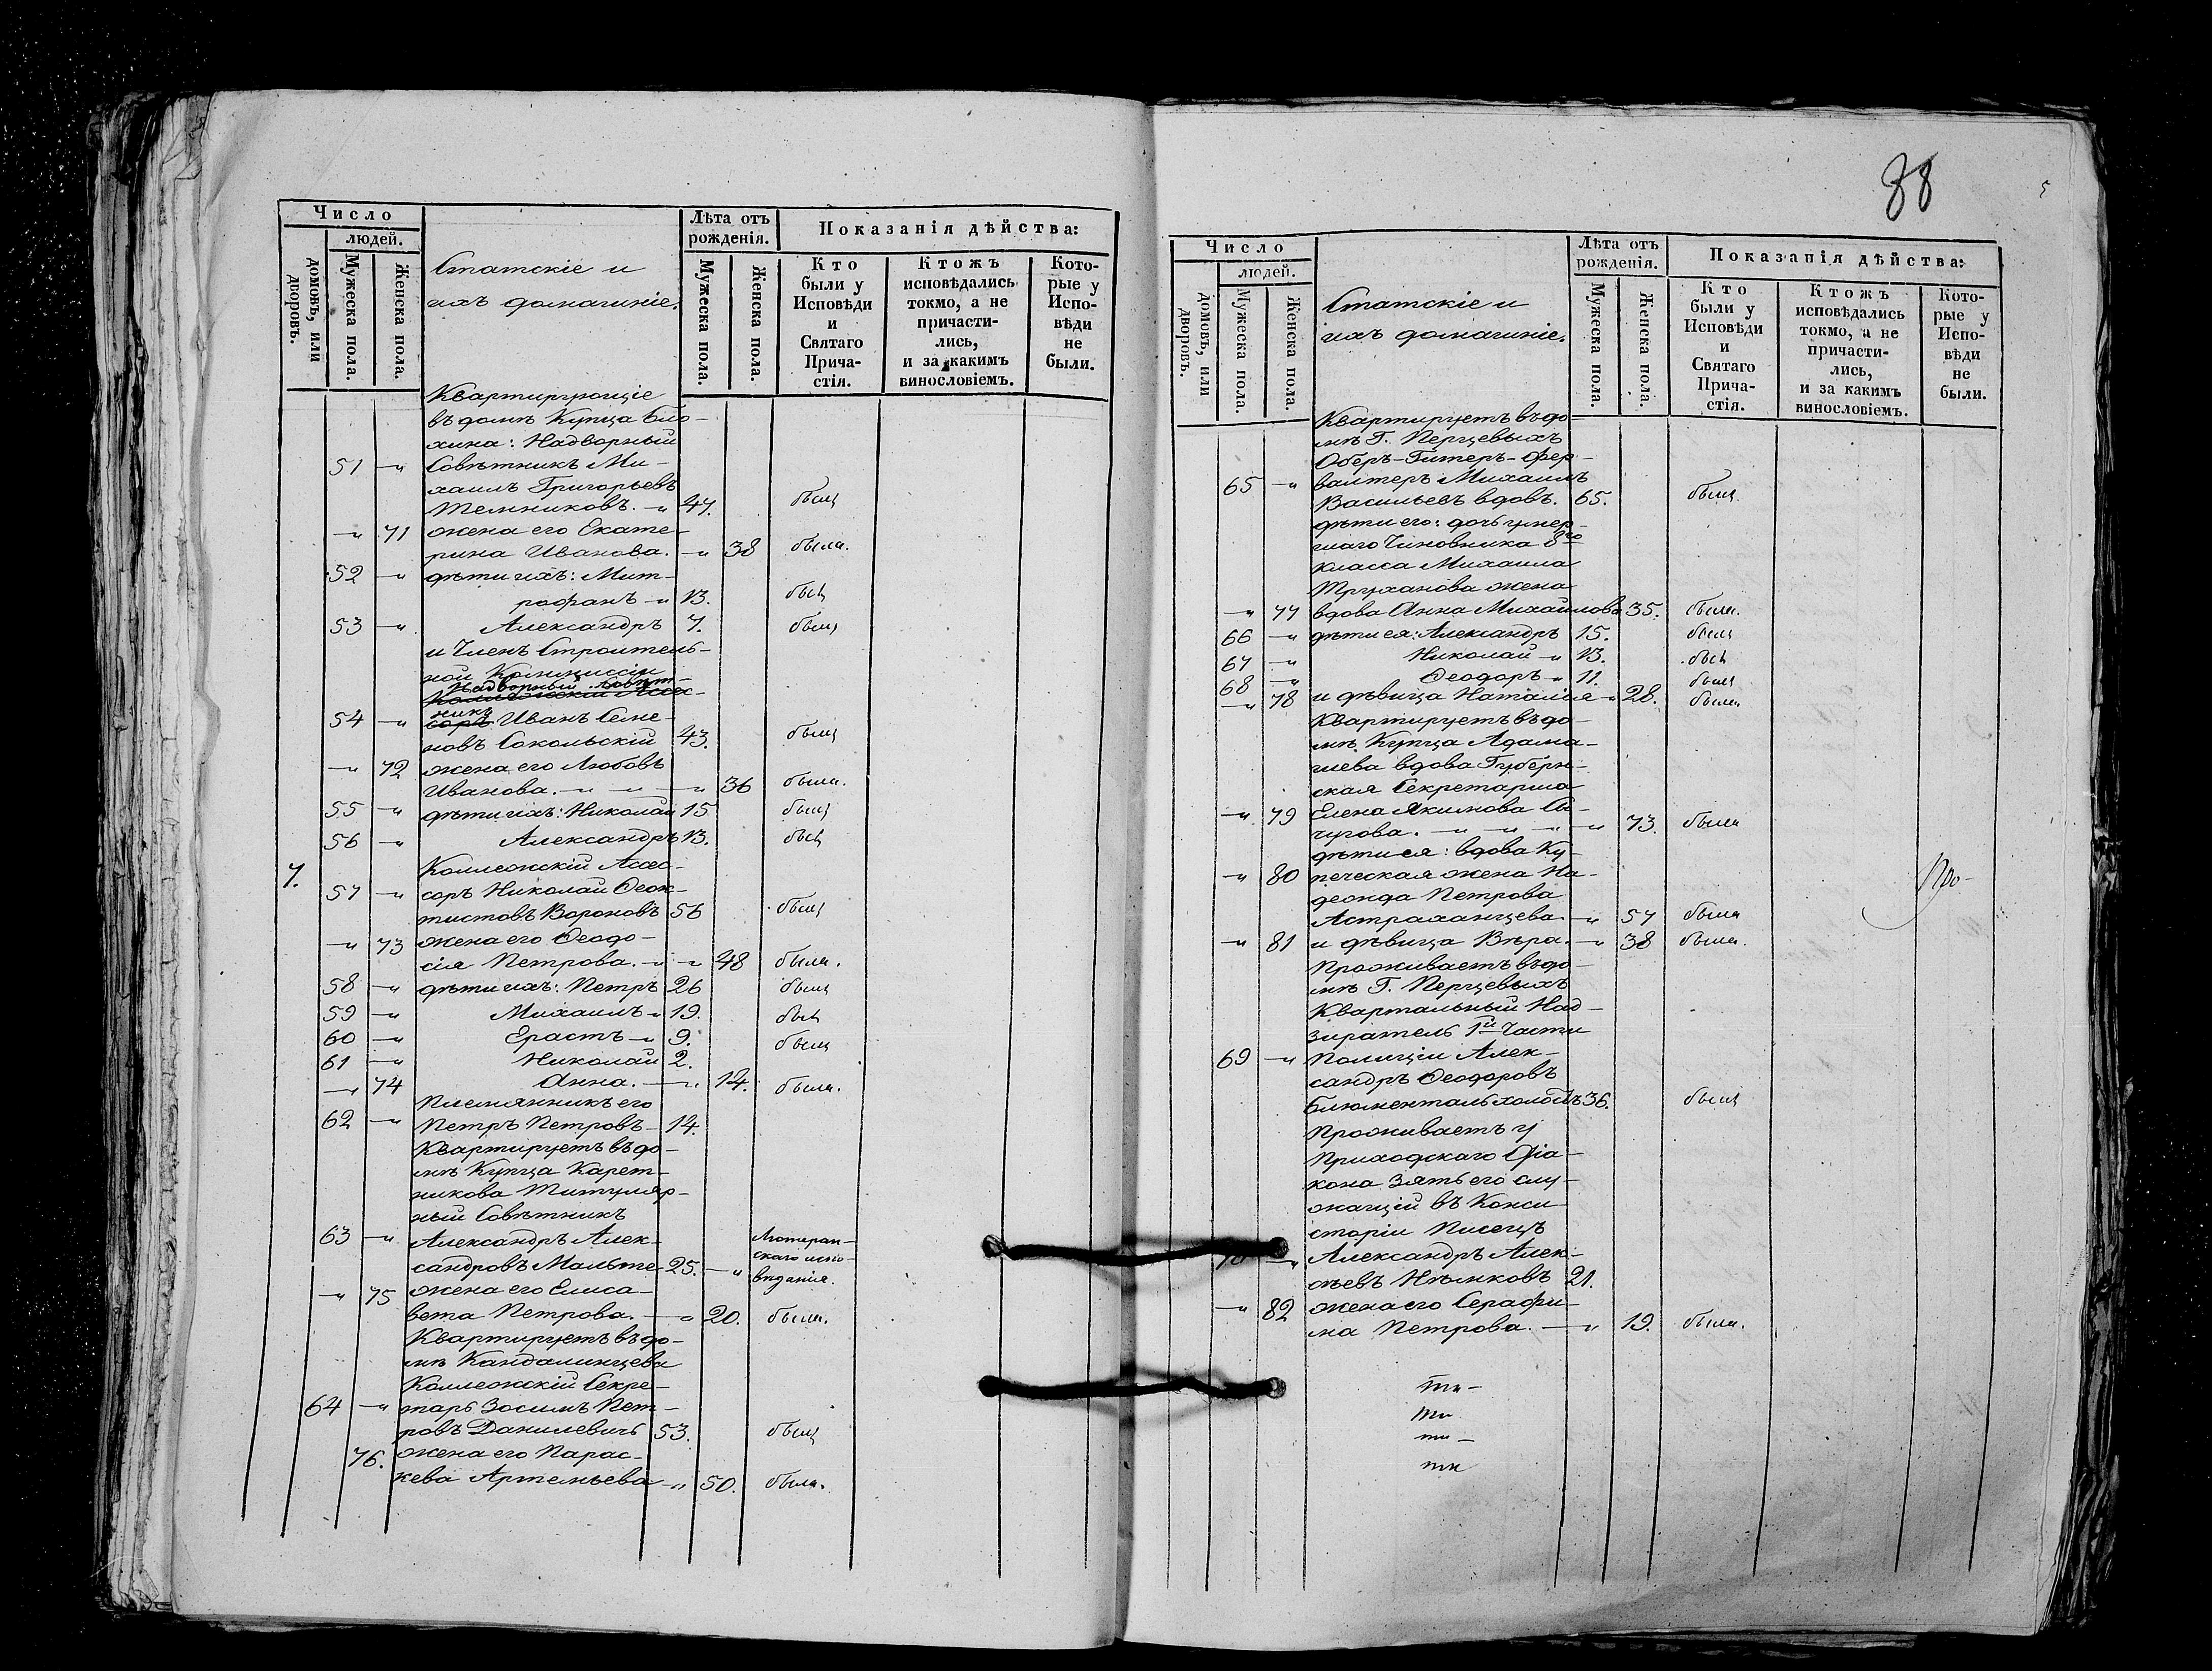 Число
людей.
домовъ, или дворовъ.
Мужеска пола.
Женска пола.
Статскіе и
ихъ домашніе.
Лѣта отъ рожденія.
Мужеска пола.
Женска пола.
Показанія дѣйства:
Кто были у Исповѣди и Святаго Прича-стія.
Ктожъ исповѣдались токмо, а не причасти-лись, и за какимъ винословіемъ.
Кото-рые у Испо-вѣди не были.
Квартирующіе
въ домѣ Купца Бло-
хина: Надворный
51 —„ Совѣтникъ Ми-
хаилъ Григорьевъ
Темниковъ. —„ 47. былъ
—„ 71 жена его Екате-
рина Иванова. —„ 38 была.
52 —„ дѣти ихъ: Мит-
рофанъ —„ 13. былъ
53 —„ Александръ 7. былъ
и Членъ Строитель-
ной Коммиссіи
Надворный Совѣт-
Коллежскій Ассес-
никъ
54 —„ соръ Иванъ Семе-
новъ Сокольскій 43. былъ
—„ 72 жена его Любовь
Иванова. —„ —„ —„ 36 была.
55 —„ дѣти ихъ: Николай 15 былъ
56 —„ Александръ 13. былъ
7. Коллежскій Ассес-
57 —„ соръ Николай Ѳеок-
тистовъ Вороновъ 56 былъ
—„ 73 жена его Ѳеодо-
сія Петрова. —„ —„ 48 была.
58 —„ дѣти ихъ: Петръ 26 былъ
59 —„ Михаилъ —„ 19. былъ
60 —„ Ерастъ —„ 9. былъ
61 —„ Николай 2.
—„ 74 Анна. —„ 14. была.
Племянникъ его
62 —„ Петръ Петровъ — 14.
Квартируетъ въ до-
мѣ Купца Карет-
никова Титуляр-
ный Совѣтникъ
63 —„ Александръ Алек- Лютеран-
сандровъ Мальте 25. —„ скаго испо-
вѣданія.
—„ 75 жена его Елиса-
вета Петрова. —„ 20. была.
Квартируетъ въ до-
мѣ Кандалинцева
Коллежскій Секре-
64 —„ тарь Зосимъ Пет-
ровъ Данилевичь 53. былъ
76. жена его Парас-
кева Артемьева —„ 50. была.
88
Число
людей.
домовъ, или дворовъ.
Мужеска пола.
Женска пола.
Статскіе и
ихъ домашніе.
Лѣта отъ рожденія.
Мужеска пола.
Женска пола.
Показанія дѣйства:
Кто были у Исповѣди и Святаго Прича-стія.
Ктожъ исповѣдались токмо, а не причасти-лись, и за какимъ винословіемъ.
Кото-рые у Испо-вѣди не были.
Квартируетъ въ до-
мѣ Г. Перцевыхъ
Оберъ-Гитеръ-Фер-
65 —„ валтеръ Михаилъ
Васильевъ вдовъ. 65. былъ.
дѣти его: дочь умер-
шаго Чиновника 8го
класса Михаила
Труханова жена
—„ 77 вдова Анна Михайлова 35. была.
66 —„ дѣти ея: Александръ 15. былъ
67 —„ Николай —„ 13. былъ
68 —„ Ѳеодоръ —„ 11. былъ
—„ 78 и дѣвица Наталія —„ 28. была
Квартируетъ въ до-
мѣ Купца Адама-
шева вдова Губерн-
ская Секретарша
—„ 79 Елена Якимова Сы-
чугова. —„ —„ —„ 73. была
дѣти ея: вдова Ку-
—„ 80 печеская жена На-
дежда Петрова
Астраханцева —„ 57 была
—„ 81 и дѣвица Вѣра. —„ 38 была.
Проживаетъ въ до-
мѣ Г. Перцевыхъ
Квартальный Над-
зиратель 1й Части
69 —„ Полиціи Алек-
сандръ Ѳеодоровъ
Блюментальхольмъ 36. былъ
Проживаетъ у
Приходскаго Діа-
кона зять его слу-
жащій въ Конси-
сторіи Писецъ
70 —„ Александръ Алек-
сѣевъ Нѣмковъ 21.
—„ 82 жена его Серафи-
ма Петрова. —„ 19. была.
Про-